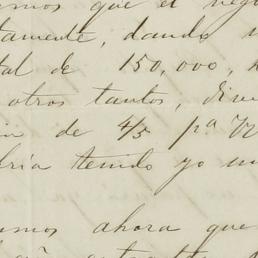 mos que el neg
tamente, dando
tal de 150,000,
otros tantos, di
de 4/5 pa
ría tenido yo un
mos ahora que